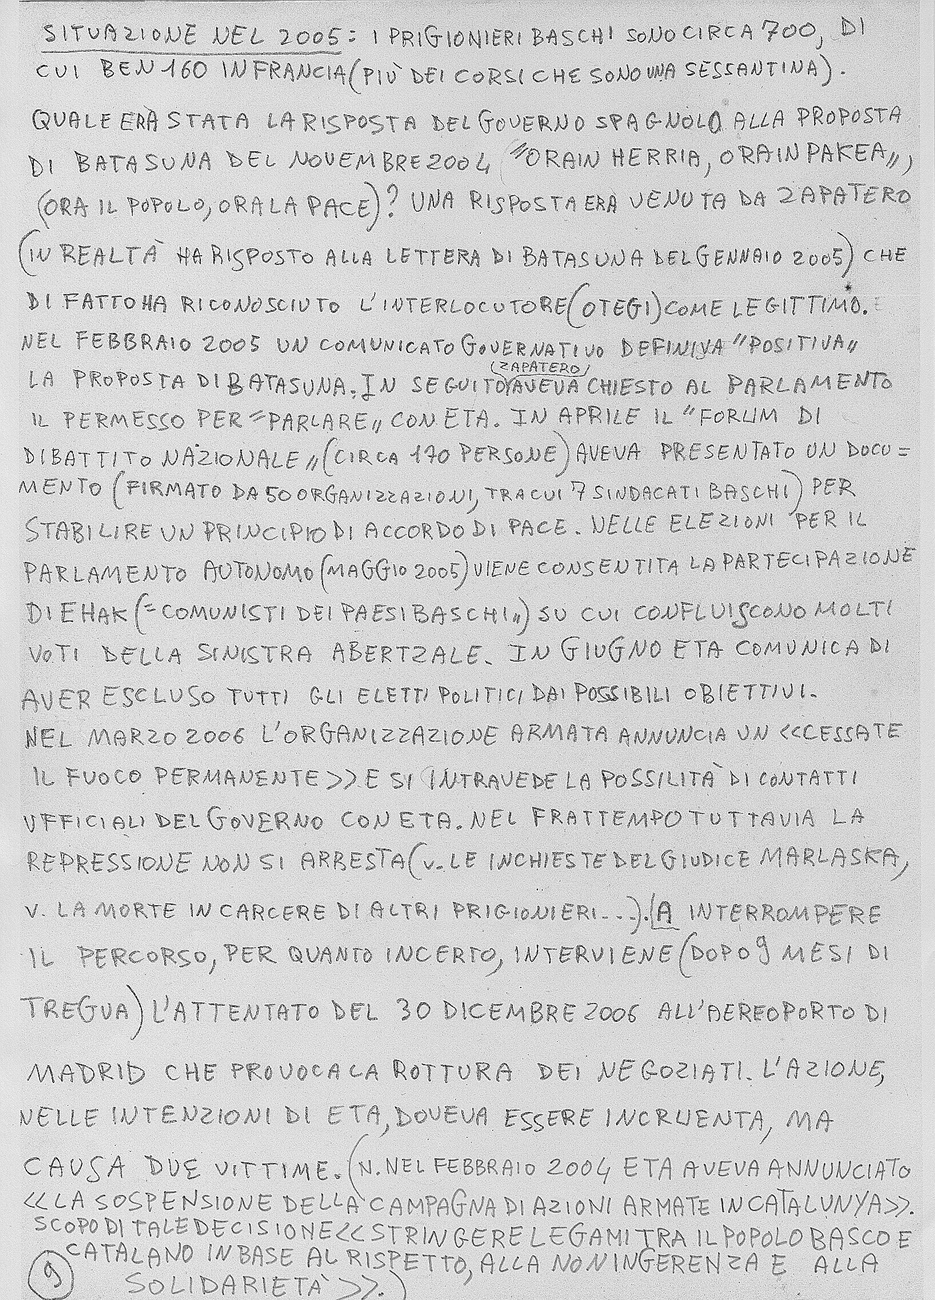 SITUAZIONE NEL 2005: I PRIGIONIERI BASCHI SONO CIRCA 700, DI
CUI BEN 160 IN FRANCIA (PIÙ DEI CORSI CHE SONO UNA SESSANTINA).
QUALE ERA STATA LA RISPOSTA DEL GOVERNO SPAGNOLO ALLA PROPOSTA
DI BATASUNA DEL NOVEMBRE 2004 "ORAIN HERRIA, ORAIN PAKEA",
(ORA IL POPOLO, ORA LA PACE)? UNA RISPOSTA ERA VENUTA DA ZAPATERO
(IN REALTÀ HA RISPOSTO ALLA LETTERA DI BATASUNA DEL GENNAIO 2005) CHE
DI FATTO HA RICONOSCIUTO L'INTERLOCUTORE (OTEGI) COME LEGITTIMO.
NEL FEBBRAIO 2005 UN COMUNICATO GOVERNATIVO DEFINIVA "POSITIVA"
LA PROPOSTA DI BATASUNA. IN SEGUITO (ZAPATERO) AVEVA CHIESTO AL PARLAMENTO
IL PERMESSO PER "PARLARE" CON ETA. IN APRILE IL "FORUM DI
DIBATTITO NAZIONALE" (CIRCA 170 PERSONE) AVEVA PRESENTATO UN DOCU=
MENTO (FIRMATO DA 50 ORGANIZZAZIONI, TRA CUI 7 SINDACATI BASCHI) PER
STABILIRE UN PRINCIPIO DI ACCORDO DI PACE. NELLE ELEZIONI PER IL
PARLAMENTO AUTONOMO (MAGGIO 2005) VIENE CONSENTITA LA PARTECIPAZIONE
DI EHAK ("COMUNISTI DEI PAESI BASCHI") SU CUI CONFLUISCONO MOLTI
VOTI DELLA SINISTRA ABERTZALE. IN GIUGNO ETA COMUNICA DI
AVER ESCLUSO TUTTI GLI ELETTI POLITICI DAI POSSIBILI OBIETTIVI.
NEL MARZO 2006 L'ORGANIZZAZIONE ARMATA ANNUNCIA UN <<CESSATE
IL FUOCO PERMANENTE>> E SI INTRAVEDE LA POSSILITÀ DI CONTATTI
UFFICIALI DEL GOVERNO CON ETA. NEL FRATTEMPO TUTTAVIA LA
REPRESSIONE NON SI ARRESTA (V. LE INCHIESTE DEL GIUDICE MARLASKA,
V. LA MORTE IN CARCERE DI ALTRI PRIGIONIERI...). A INTERROMPERE
IL PERCORSO, PER QUANTO INCERTO, INTERVIENE (DOPO 9 MESI DI
TREGUA) L'ATTENTATO DEL 30 DICEMBRE 2006 ALL'AEREOPORTO DI
MADRID CHE PROVOCA LA ROTTURA DEI NEGOZIATI. L'AZIONE,
NELLE INTENZIONI DI ETA, DOVEVA ESSERE INCRUENTA, MA
CAUSA DUE VITTIME. (N. NEL FEBBRAIO 2004 ETA AVEVA ANNUNCIATO
<<LA SOSPENSIONE DELLA CAMPAGNA DI AZIONI ARMATE IN CATALUNYA>>.
SCOPO DI TALE DECISIONE <<STRINGERE LEGAMI TRA IL POPOLO BASCO E
CATALANO IN BASE AL RISPETTO, ALLA NON INGERENZA E ALLA
SOLIDARIETÀ>>.)
9